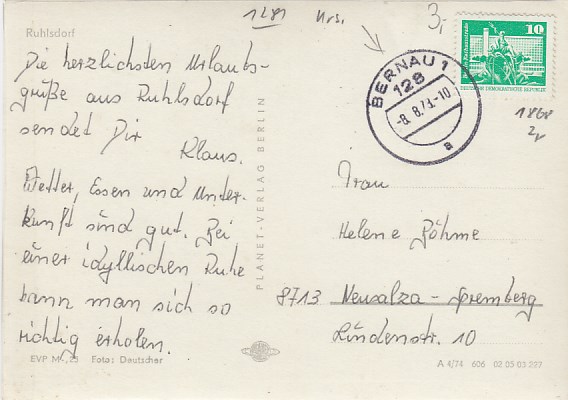 1281 Krs.
3,-
Ruhlsdorf
Die herzlichsten Urlaubs-
grüße aus Ruhlsdorf
sendet Dir
Klaus.
Wetter, Essen und Unter-
kunft sind gut. Bei
einer idyllischen Ruhe
kann man sich so
richtig erholen.
EVP M -,25 Foto: Deutscher
PLANET-VERLAG BERLIN
BERNAU 1
128
-8. 8.
-10
a
10
DEUTSCHE DEMOKRATISCHE REPUBLIK
1868
Frau
Helene Böhme
8713 Neusalza-Spremberg
Lindenstr. 10
A 4/74 606 02 05 03 227